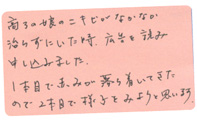 高3の娘のニキビがなかなか
治らずにいた時、広告を読み
申し込みました。
1本目で赤みが落ち着いてきた
ので2本目で様子をみようと思います。